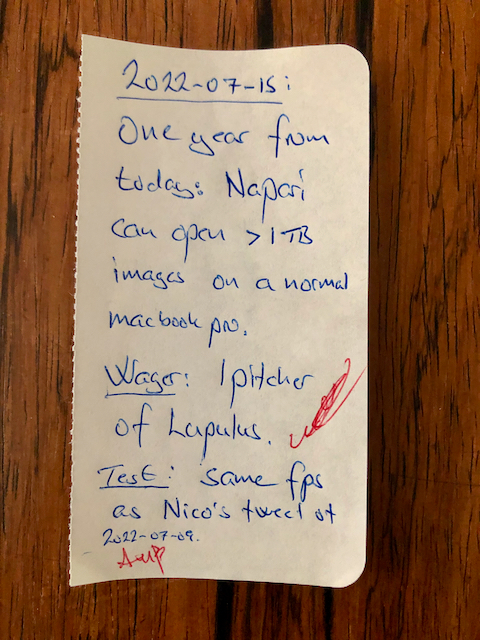 2022-07-15:
One year from
today: Napari
can open >1TB
images on a normal
macbook pro.
Wager: 1 pitcher
of Lupulus.
Test: same fps
as Nico's tweet of
2022-07-09.